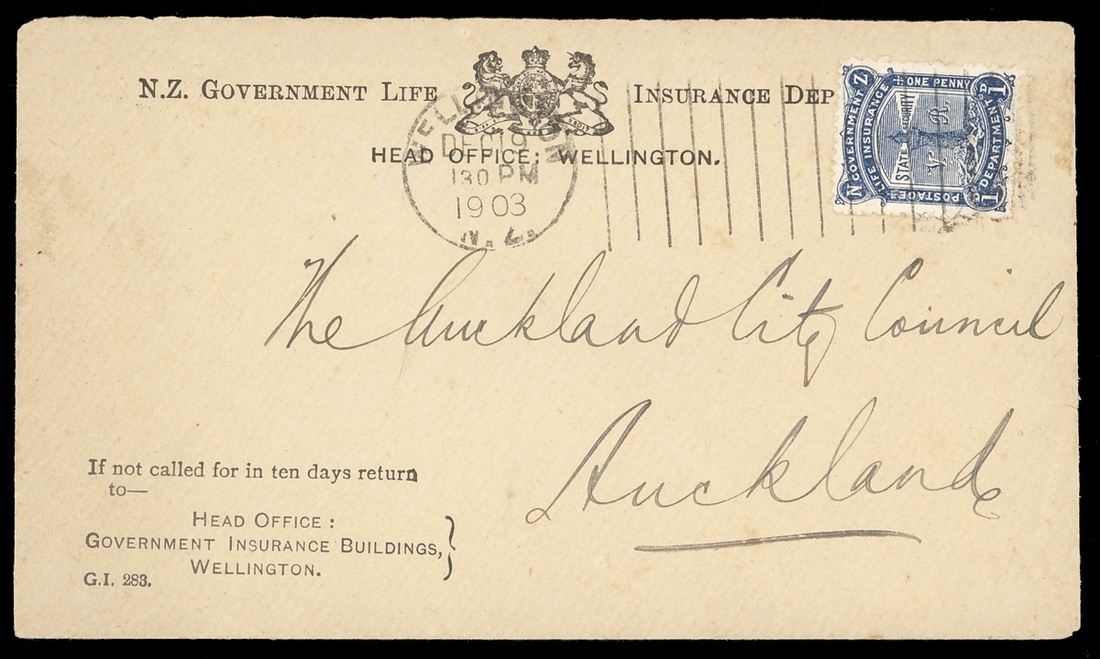 N.Z. GOVERNMENT LIFE INSURANCE DEP
HEAD OFFICE: WELLINGTON.
WELLINGTON
DEC 19
1 30 PM
1903
N.Z.
N Z
ONE PENNY
GOVERNMENT
LIFE INSURANCE
STATE SECURITY
V. R.
DEPARTMENT
POSTAGE
1D
1D
The Auckland City Council
Auckland
If not called for in ten days return
to—
HEAD OFFICE:
GOVERNMENT INSURANCE BUILDINGS,
WELLINGTON.
G.I. 283.